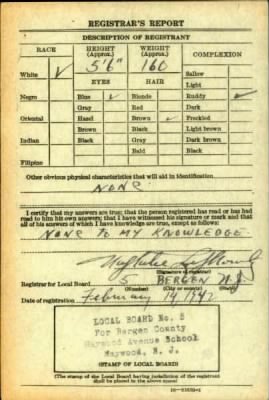 REGISTRAR'S REPORT
DESCRIPTION OF REGISTRANT
RACE HEIGHT (Approx.) WEIGHT (Approx.) COMPLEXION
5'6" 160
White ✓ Sallow
EYES HAIR Light
Negro Blue ✓ Blonde Ruddy ✓
Gray Red Dark
Oriental Hazel Brown ✓ Freckled
Brown Black Light brown
Indian Black Gray Dark brown
Bald Black
Filipino
Other obvious physical characteristics that will aid in identification
NONE
I certify that my answers are true; that the person registered has read or has had
read to him his own answers; that I have witnessed his signature or mark and that
all of his answers of which I have knowledge are true, except as follows:
NONE TO MY KNOWLEDGE
(Signature of registrar)
Registrar for Local Board 5 BERGEN N.J.
(Number) (City or county) (State)
Date of registration February 14, 1942
LOCAL BOARD No. 5
For Bergen County
Maywood Avenue School
Maywood, N. J.
(STAMP OF LOCAL BOARD)
(The stamp of the Local Board having jurisdiction of the registrant
shall be placed in the above space.)